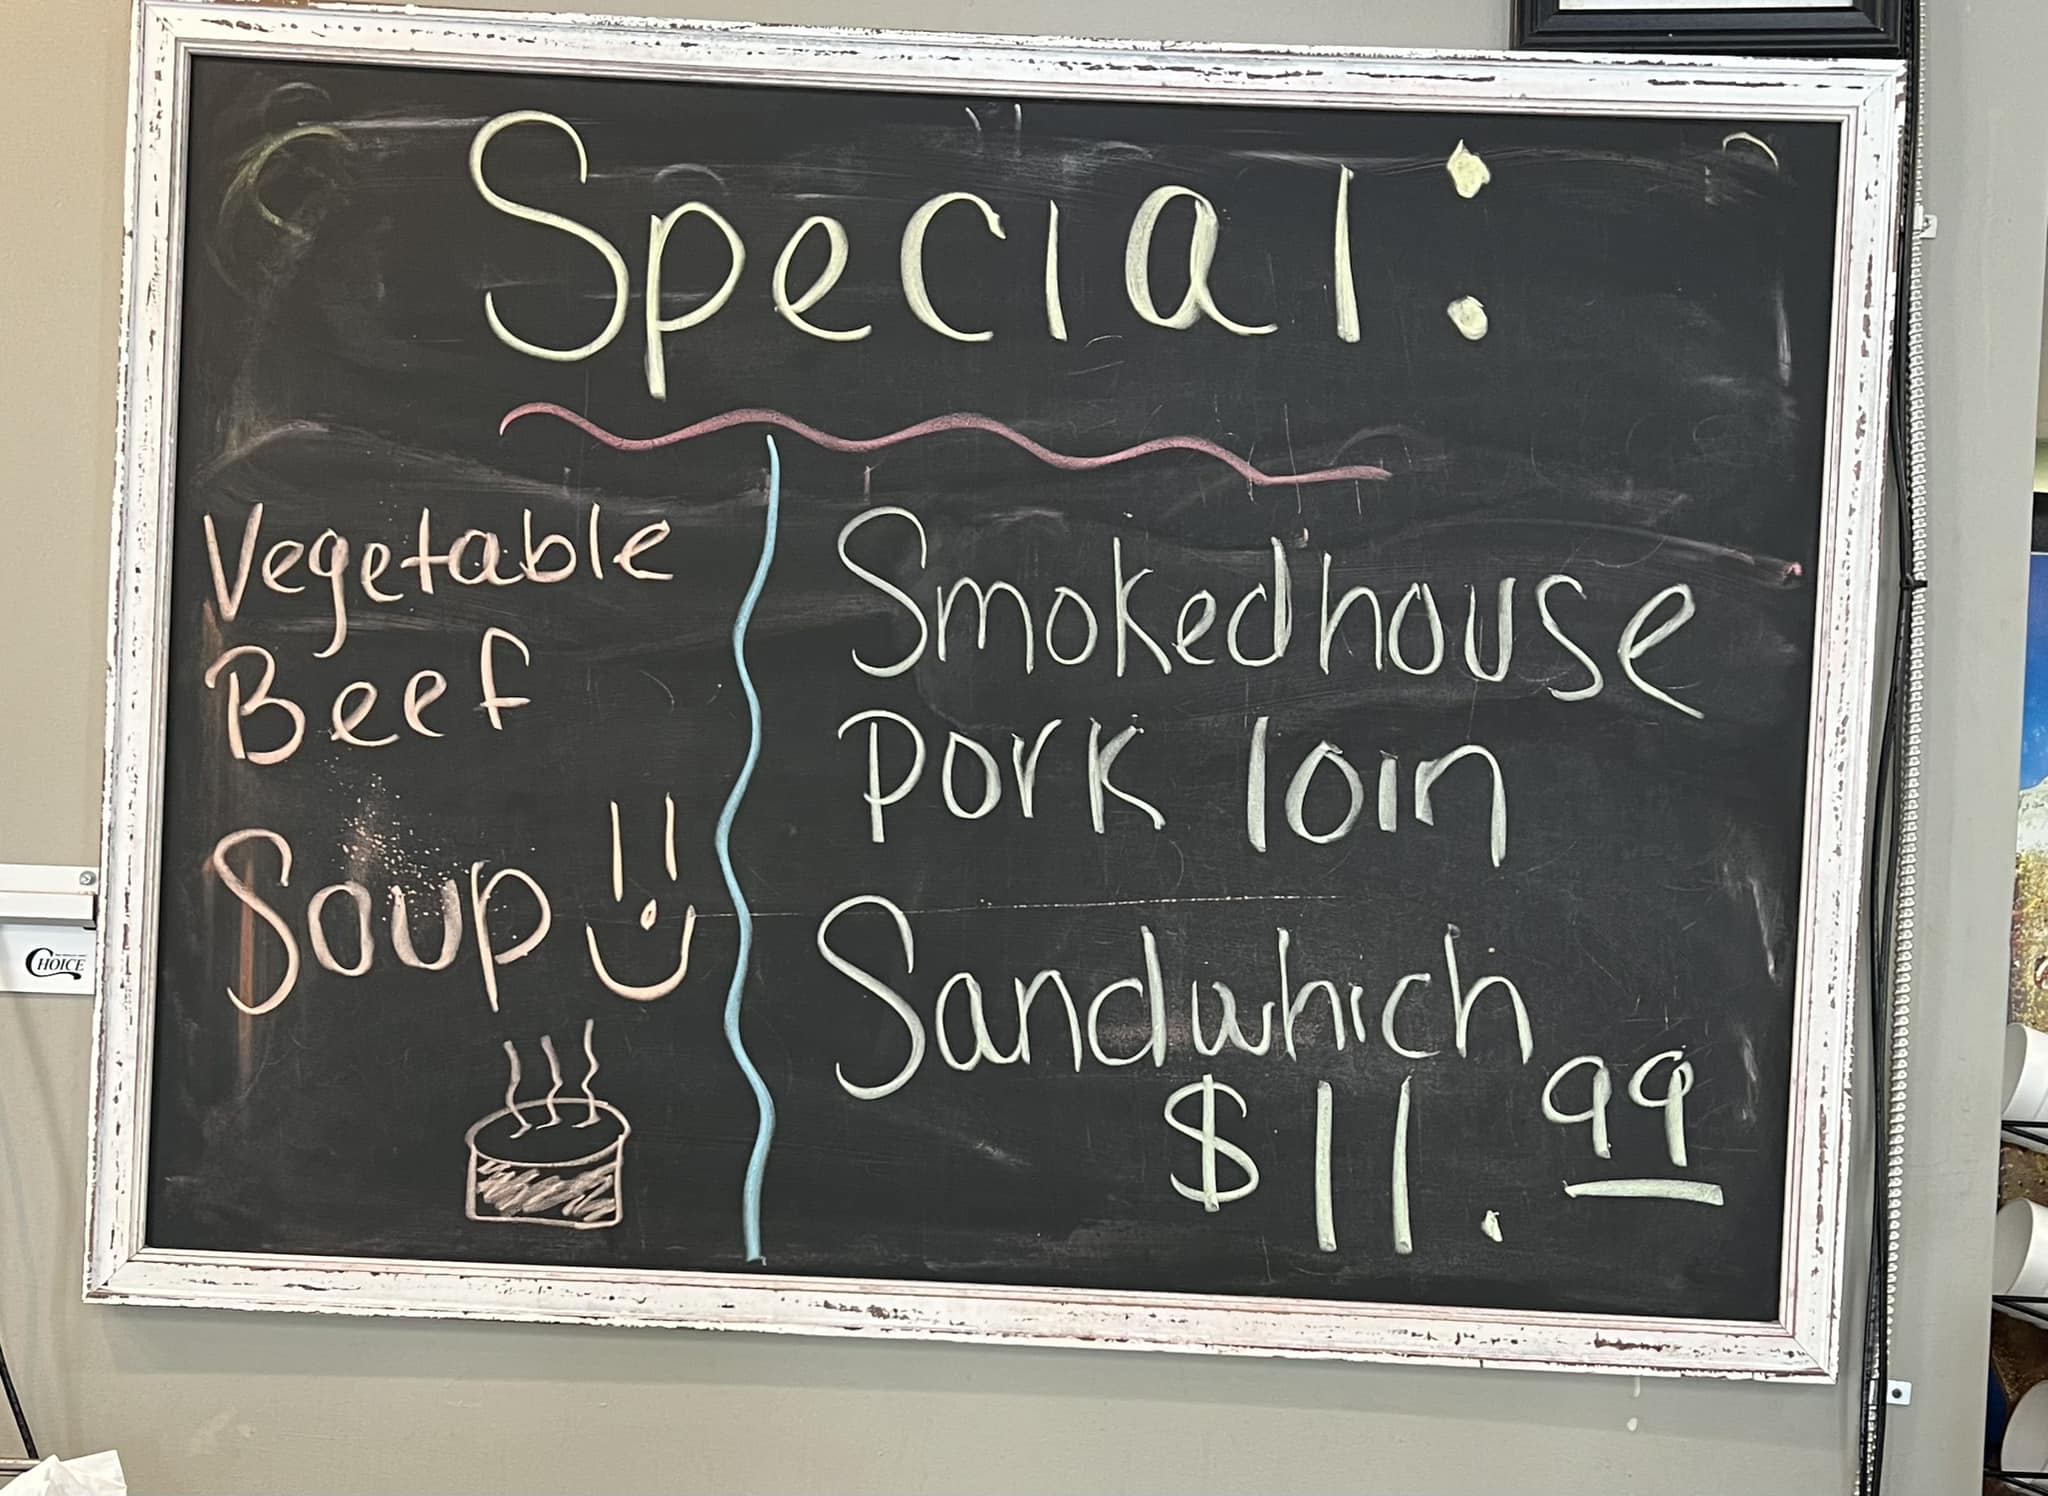 Special:
Vegetable
Beef
Soup
Smokedhouse
Pork loin
Sandwhich
$11.99
CHOICE